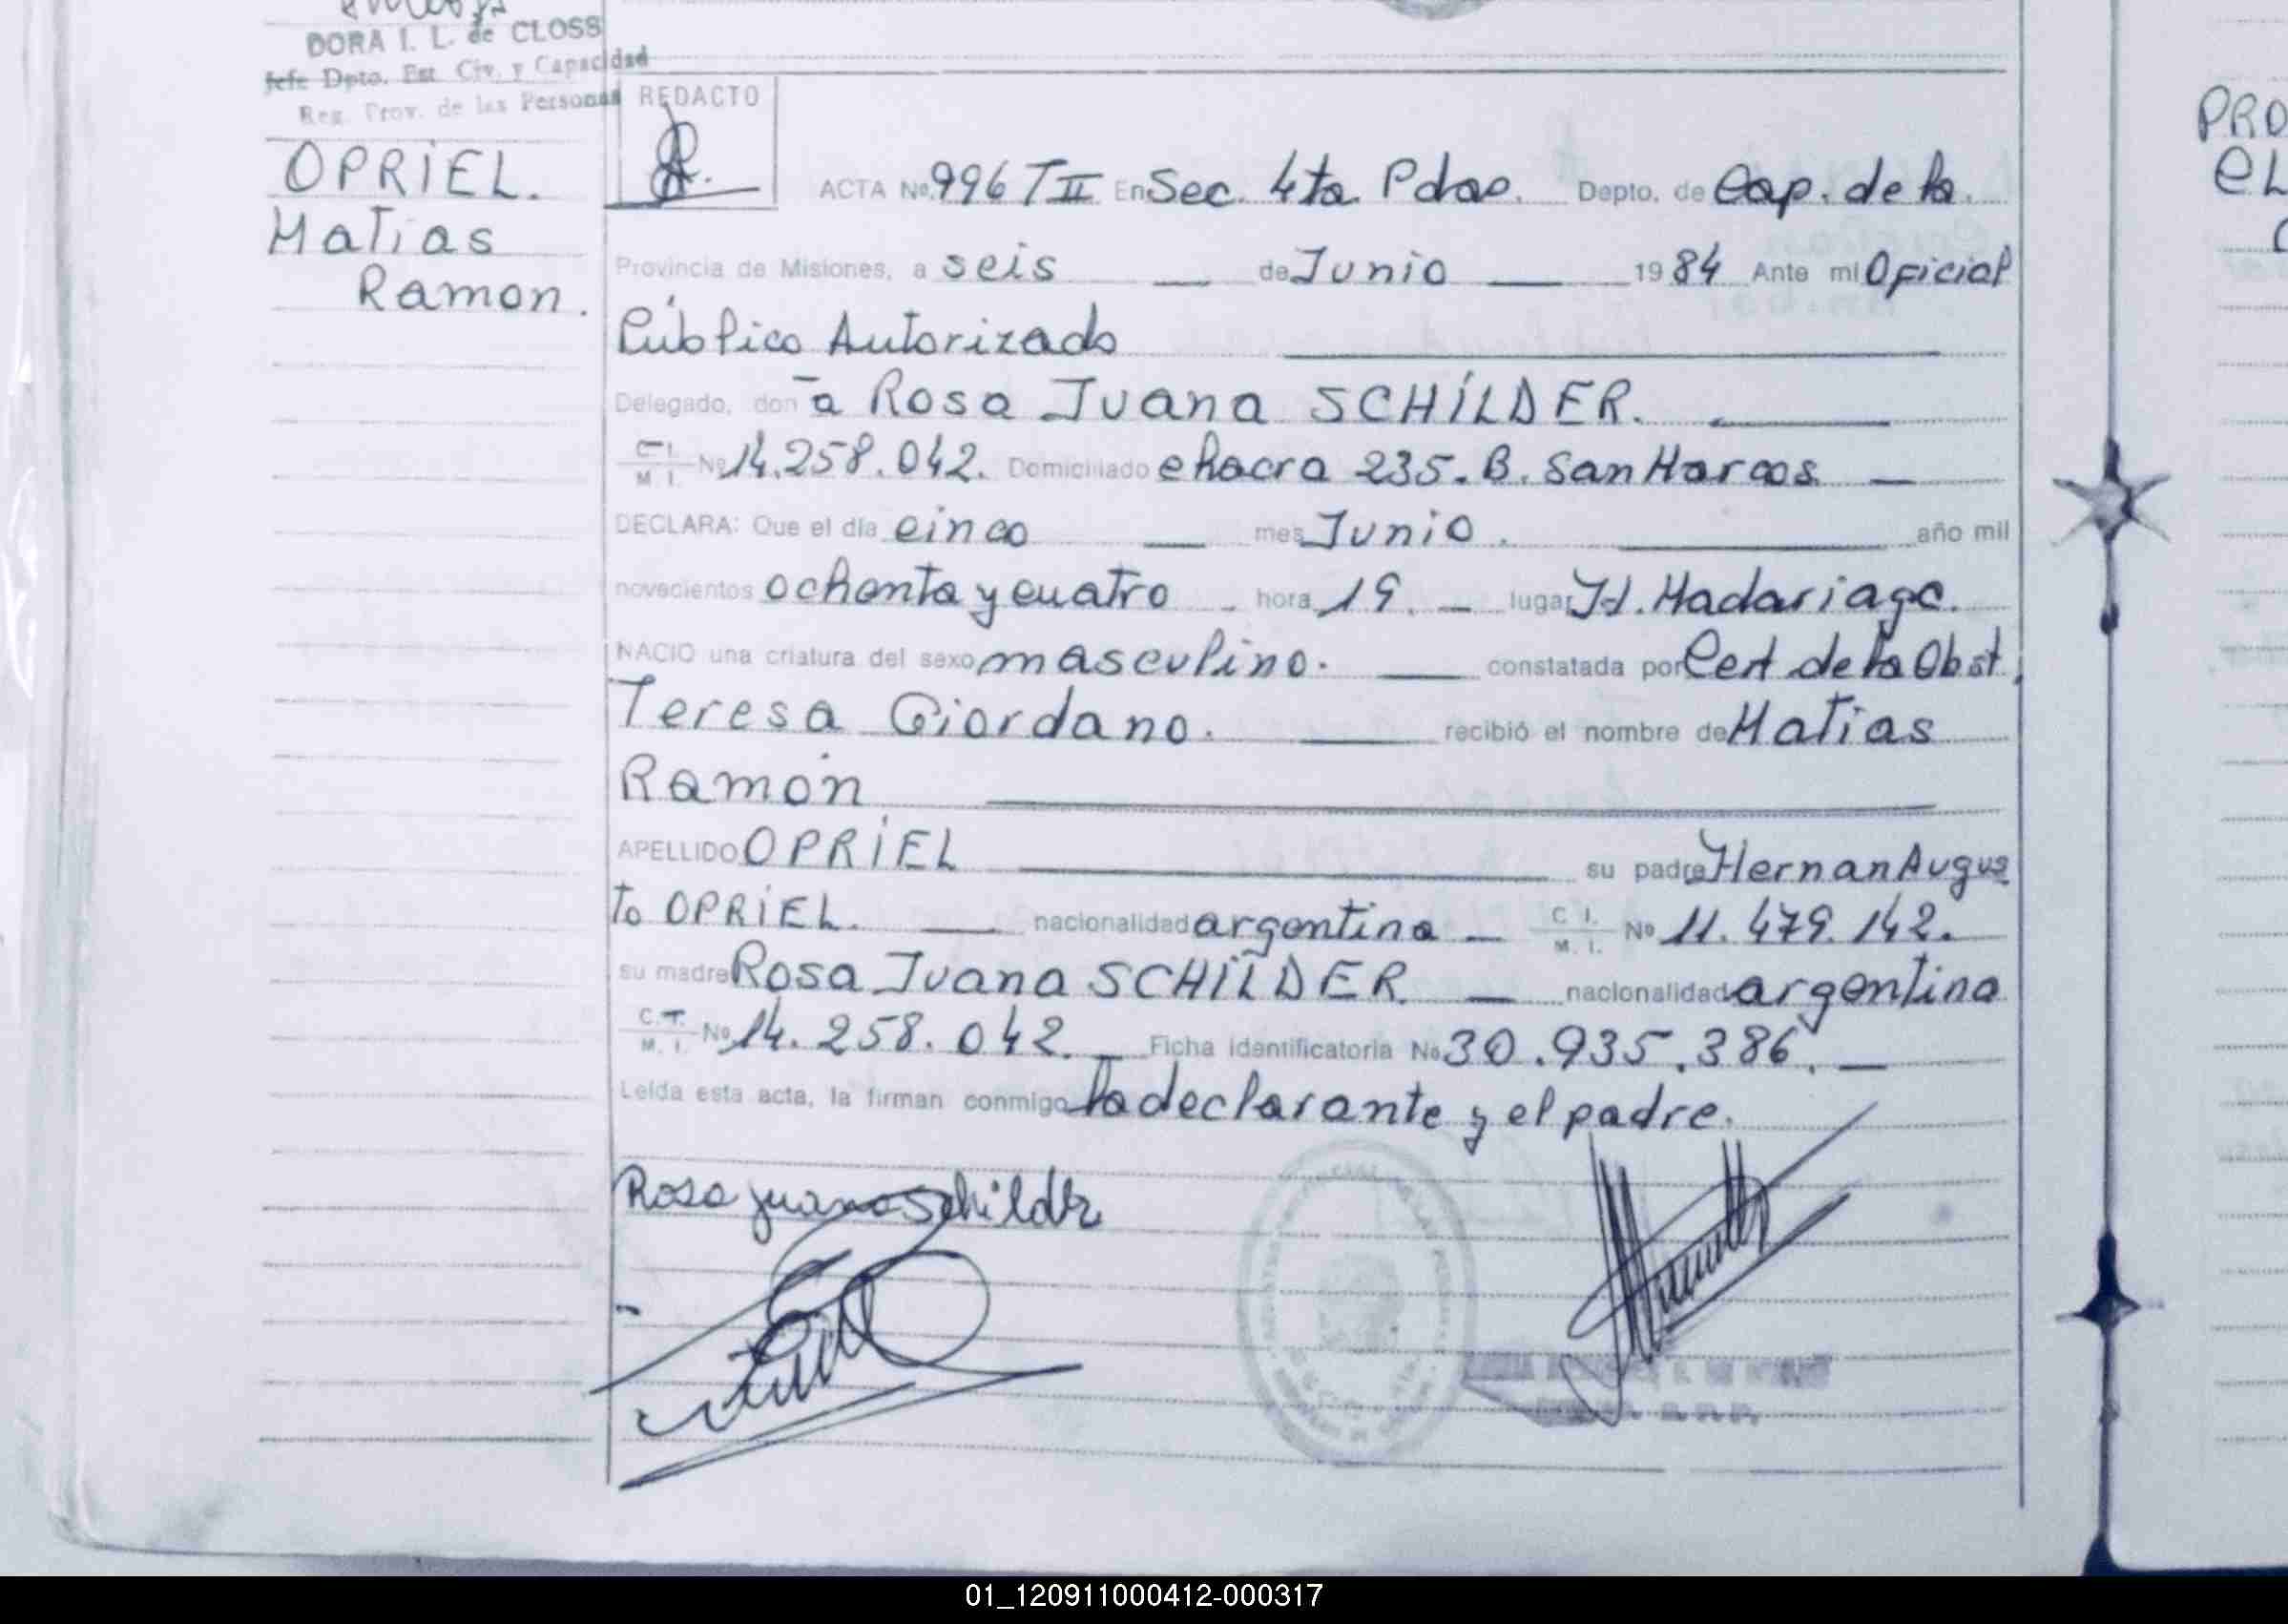 DORA I. L. de CLOSS
Jefe Dpto. Est. Civ. y Capacidad
Reg. Prov. de las Personas
REDACTO
OPRIEL.
Matias
Ramon.
ACTA Nº 996 T II En Sec. 4ta Pdas. Depto. de Cap. de la
Provincia de Misiones, a seis de Junio 1984 Ante mi Oficial
Público Autorizado
Delegado, don a Rosa Juana SCHILDER.
C. I. M. I. Nº 14.258.042. Domiciliado chacra 235. B. San Marcos
DECLARA: Que el día cinco mes Junio. año mil
novecientos ochenta y cuatro hora 19. lugar H. Madariaga.
NACIO una criatura del sexo masculino. constatada por Cert de la Obst.
Teresa Giordano. recibió el nombre de Matias
Ramón
APELLIDO OPRIEL su padre Hernan Augus
to OPRIEL. nacionalidad argentina C. I. M. I. Nº 11.479.142.
su madre Rosa Juana SCHILDER nacionalidad argentina
C. I. M. I. Nº 14.258.042. Ficha identificatoria Nº 30.935.386.
Leída esta acta, la firman conmigo la declarante y el padre.
Rosa Juana Schilder
PRO
01_120911000412-000317